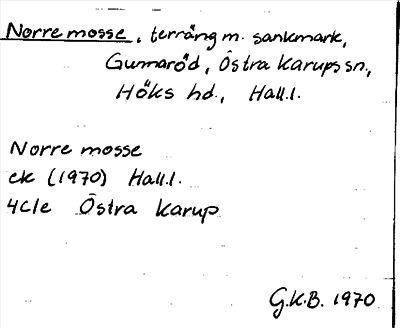 Norre mosse, terräng m. sankmark,
Gunnaröd, Östra Karups sn.,
Höks hd., Hall.l.
Norre mosse
ek (1970) Hall.l.
4C1e Östra Karup
G.K.B. 1970